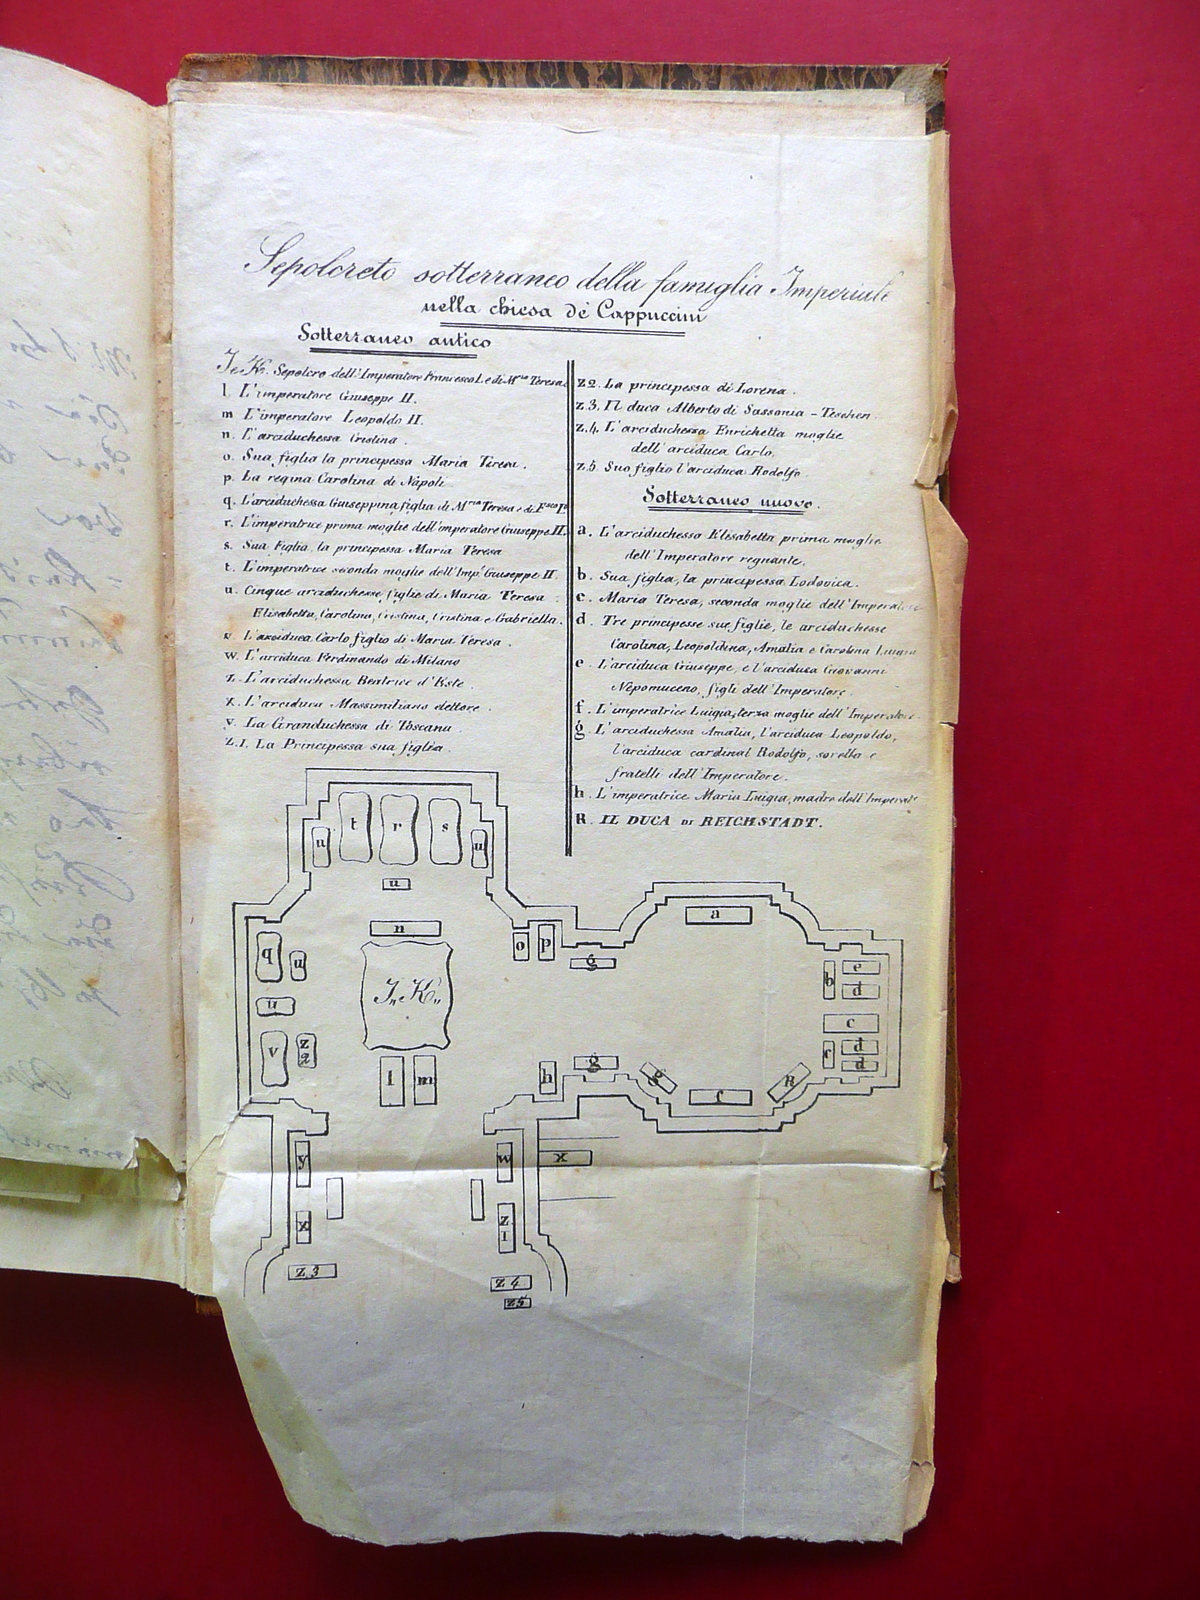 Sepolcreto sotterraneo della famiglia Imperiale
nella chiesa de' Cappuccini
Sotterraneo antico
J. e K. Sepolcro dell'Imperatore Francesco I. e di Mria Teresa.
l. L'imperatore Giuseppe II.
m L'imperatore Leopoldo II.
n. L'arciduchessa Cristina.
o. Sua figlia la principessa Maria Teresa.
p. La regina Carolina di Napoli.
q. L'arciduchessa Giuseppina figlia di Mria Teresa e di Fsco I.
r. L'imperatrice prima moglie dell'imperatore Giuseppe II.
s. Sua Figlia, la principessa Maria Teresa
t. L'imperatrice seconda moglie dell'Imp.r Giuseppe II.
u. Cinque arciduchesse figlie di Maria Teresa
Elisabetta, Carolina, Cristina, Cristina e Gabriella.
v. L'arciduca Carlo figlio di Maria Teresa.
w. L'arciduca Ferdinando di Milano
z. L'arciduchessa Beatrice d'Este.
x. L'arciduca Massimiliano elettore.
v. La Granduchessa di Toscana
z.1. La Principessa sua figlia.
z2. La principessa di Lorena.
z.3. Il duca Alberto di Sassonia - Teschen.
z.4. L'arciduchessa Enrichetta moglie
dell'arciduca Carlo.
z.5. Suo figlio l'arciduca Rodolfo.
Sotterraneo nuovo.
a. L'arciduchessa Elisabetta prima moglie
dell'Imperatore regnante.
b. Sua figlia, la principessa Lodovica.
c. Maria Teresa, seconda moglie dell'Imperatore
d. Tre principesse sue figlie, le arciduchesse
Carolina, Leopoldina, Amalia e Carolina Luigia
e. L'arciduca Giuseppe, e l'arciduca Giovanni
Nepomuceno, figli dell'Imperatore
f. L'imperatrice Luigia, terza moglie dell'Imperatore
g. L'arciduchessa Amalia, l'arciduca Leopoldo,
l'arciduca cardinal Rodolfo, sorella e
fratelli dell'Imperatore.
h. L'imperatrice Maria Luigia, madre dell'Imperat.e
R. IL DUCA DI REICHSTADT.
u t r s u
u
n
q u
J. K.
u
v z2
l m
o p
g
a
b e
d
c
c d
d
h g g f R
y w x
x z1
z3 z4
z5